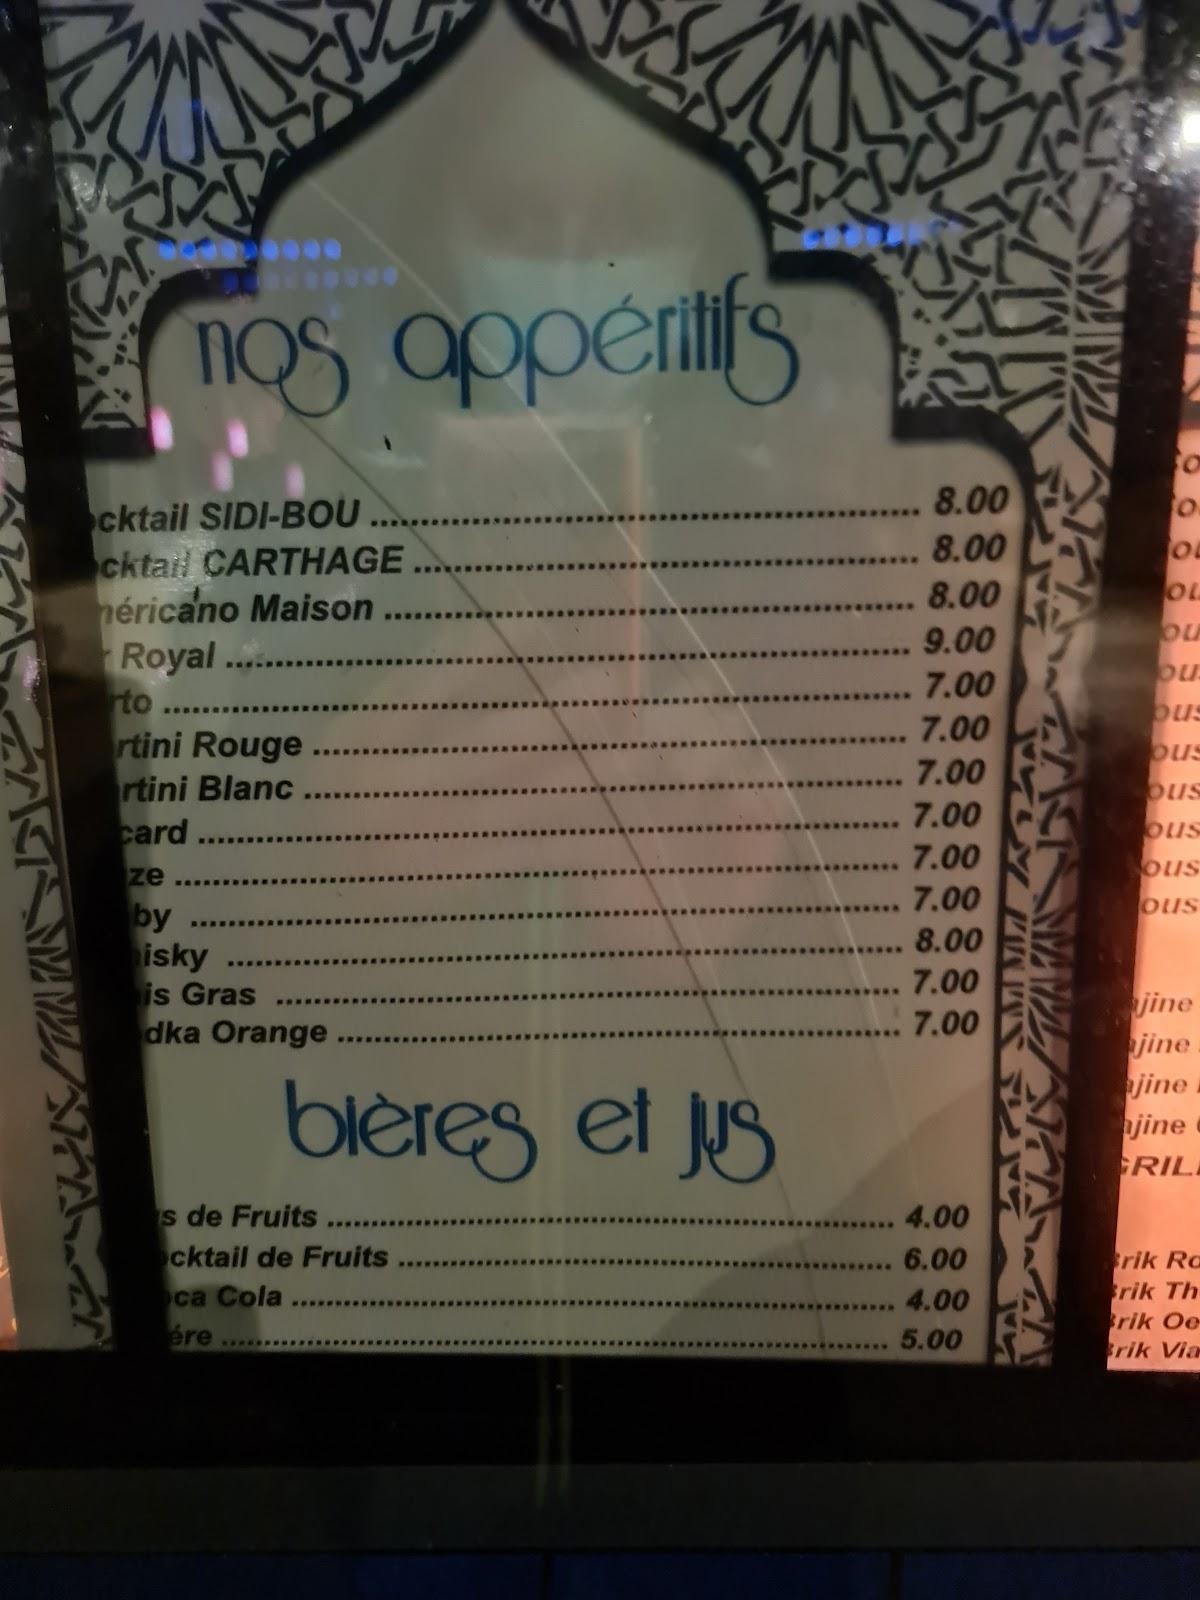 nos appéritifs
ocktail SIDI-BOU ........ 8.00
ocktail CARTHAGE ........ 8.00
méricano Maison ........ 8.00
r Royal ........ 9.00
rto ........ 7.00
rtini Rouge ........ 7.00
artini Blanc ........ 7.00
card ........ 7.00
ze ........ 7.00
by ........ 7.00
hisky ........ 8.00
is Gras ........ 7.00
dka Orange ........ 7.00
bières et jus
s de Fruits ........ 4.00
ocktail de Fruits ........ 6.00
oca Cola ........ 4.00
ére ........ 5.00
ajine
ajine
ajine
ajine
GRIL
Brik Ro
Brik Th
Brik Oe
Brik Via